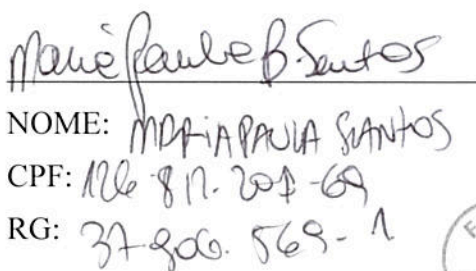 Maria Paula B. Santos
NOME: MARIA PAULA SANTOS
CPF: 126-812-201-69
RG: 37-906.569-1